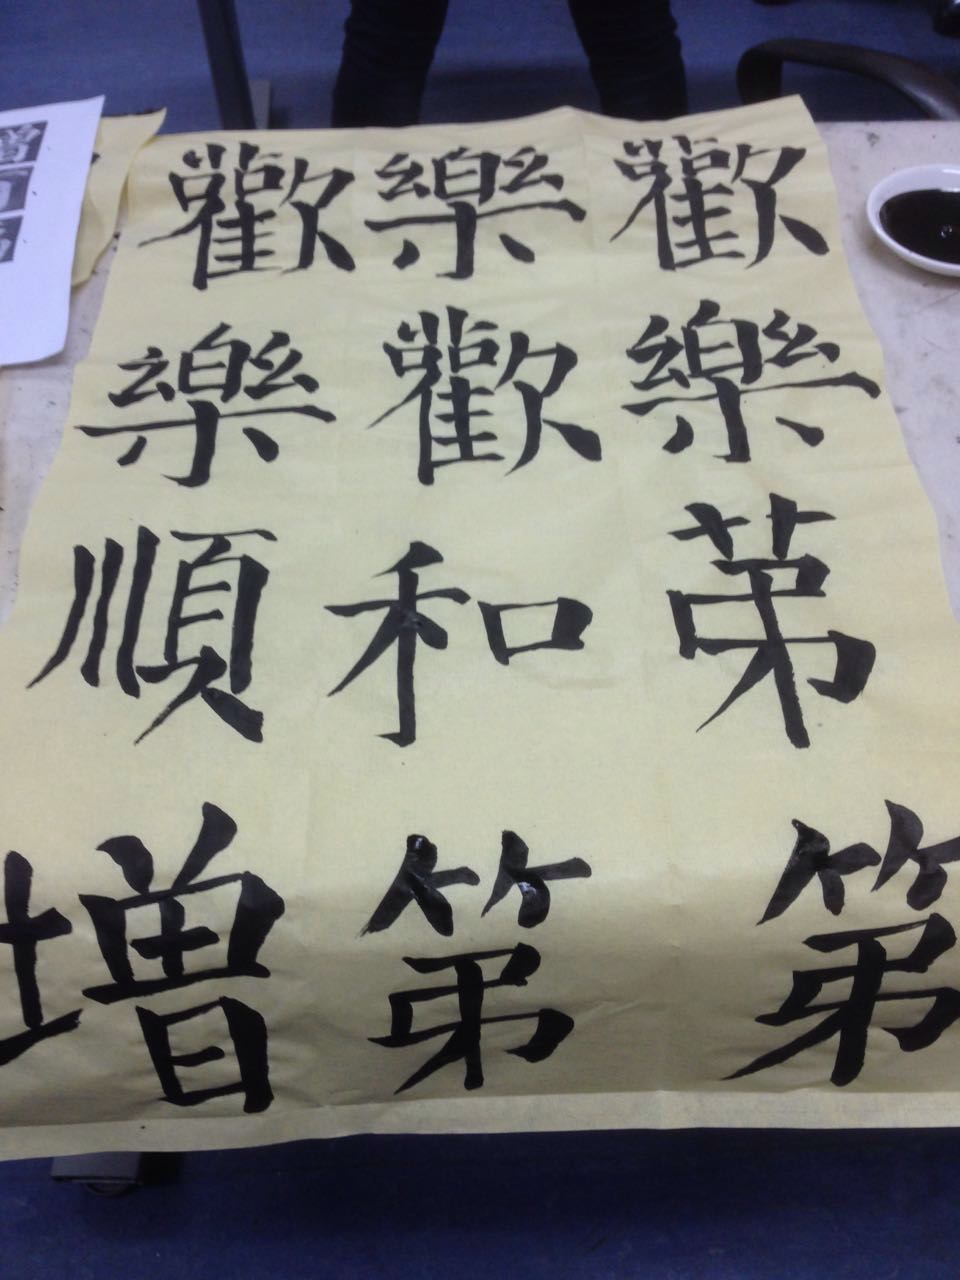 歡樂歡
樂歡樂
順和苐
增第第